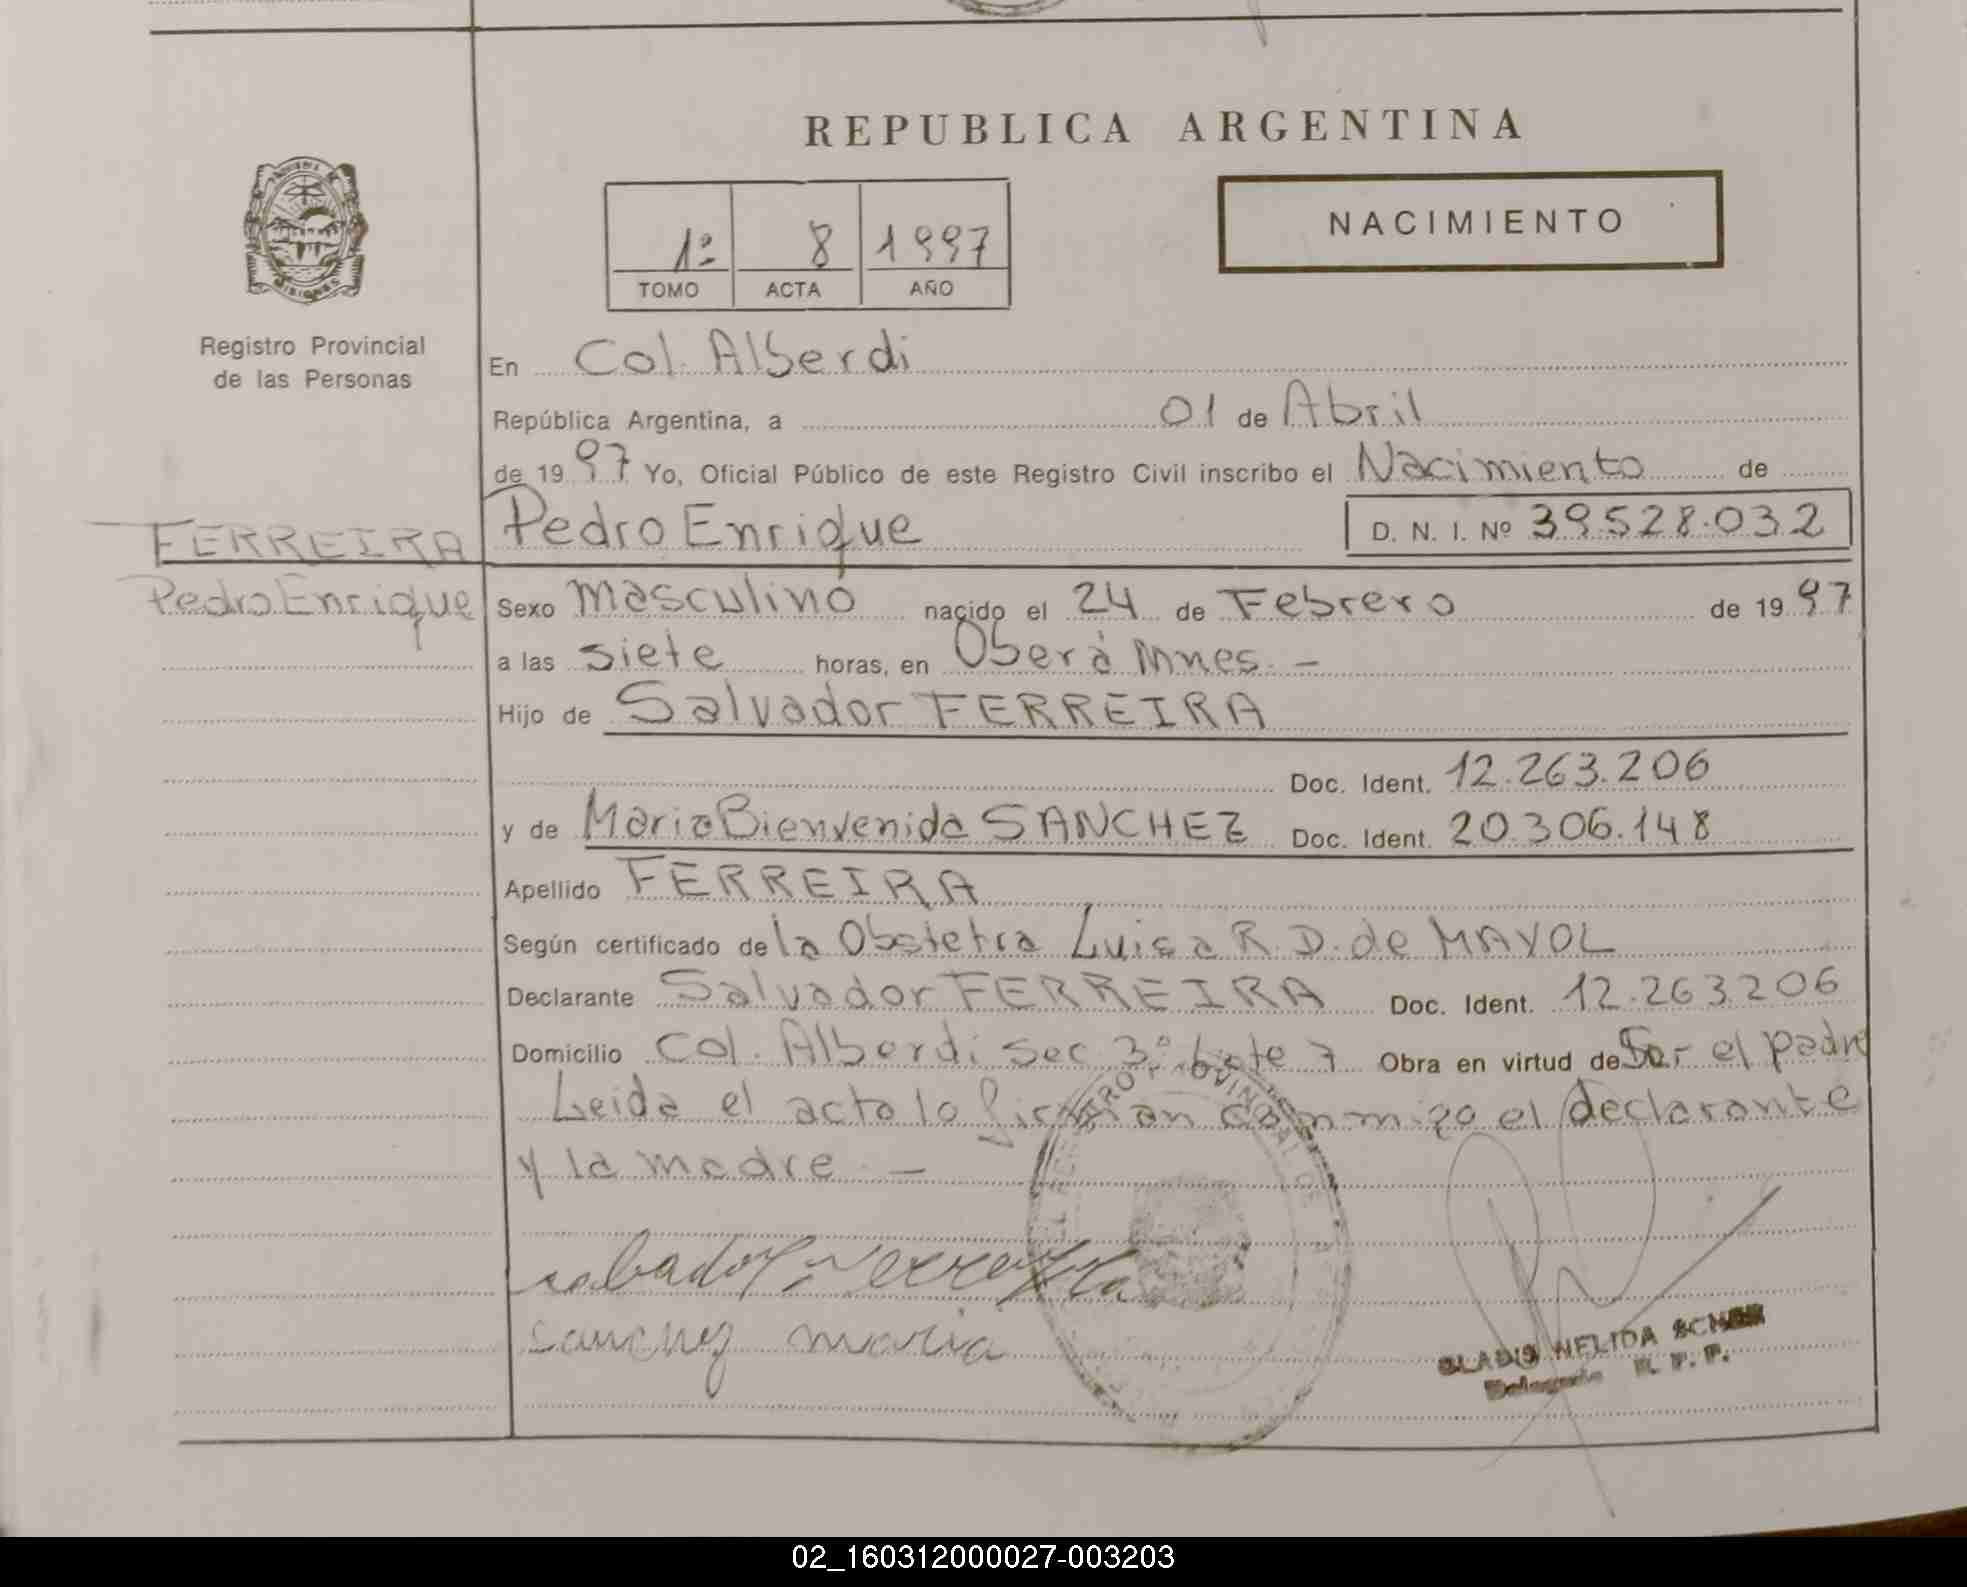 REPUBLICA ARGENTINA
NACIMIENTO
1º 8 1997
TOMO ACTA AÑO
Registro Provincial
de las Personas
En Col. Alberdi
República Argentina, a 01 de Abril
de 1997 Yo, Oficial Público de este Registro Civil inscribo el Nacimiento de
FERREIRA
Pedro Enrique
Pedro Enrique D. N. I. Nº 39.528.032
Sexo Masculino nacido el 24 de Febrero de 1997
a las siete horas, en Oberá Mnes. -
Hijo de Salvador FERREIRA
Doc. Ident. 12.263.206
y de Maria Bienvenida SANCHEZ Doc. Ident. 20.306.148
Apellido FERREIRA
Según certificado de la Obstetra Luisa R. D. de MAYOL
Declarante Salvador FERREIRA Doc. Ident. 12.263.206
Domicilio Col. Alberdi Sec 3º Lote 7 Obra en virtud de Ser el padre
Leida el acta la firman conmigo el declarante
y la madre. -
Sanchez maria
GLADIS NELIDA
Delegada R. P. P.
02_160312000027-003203